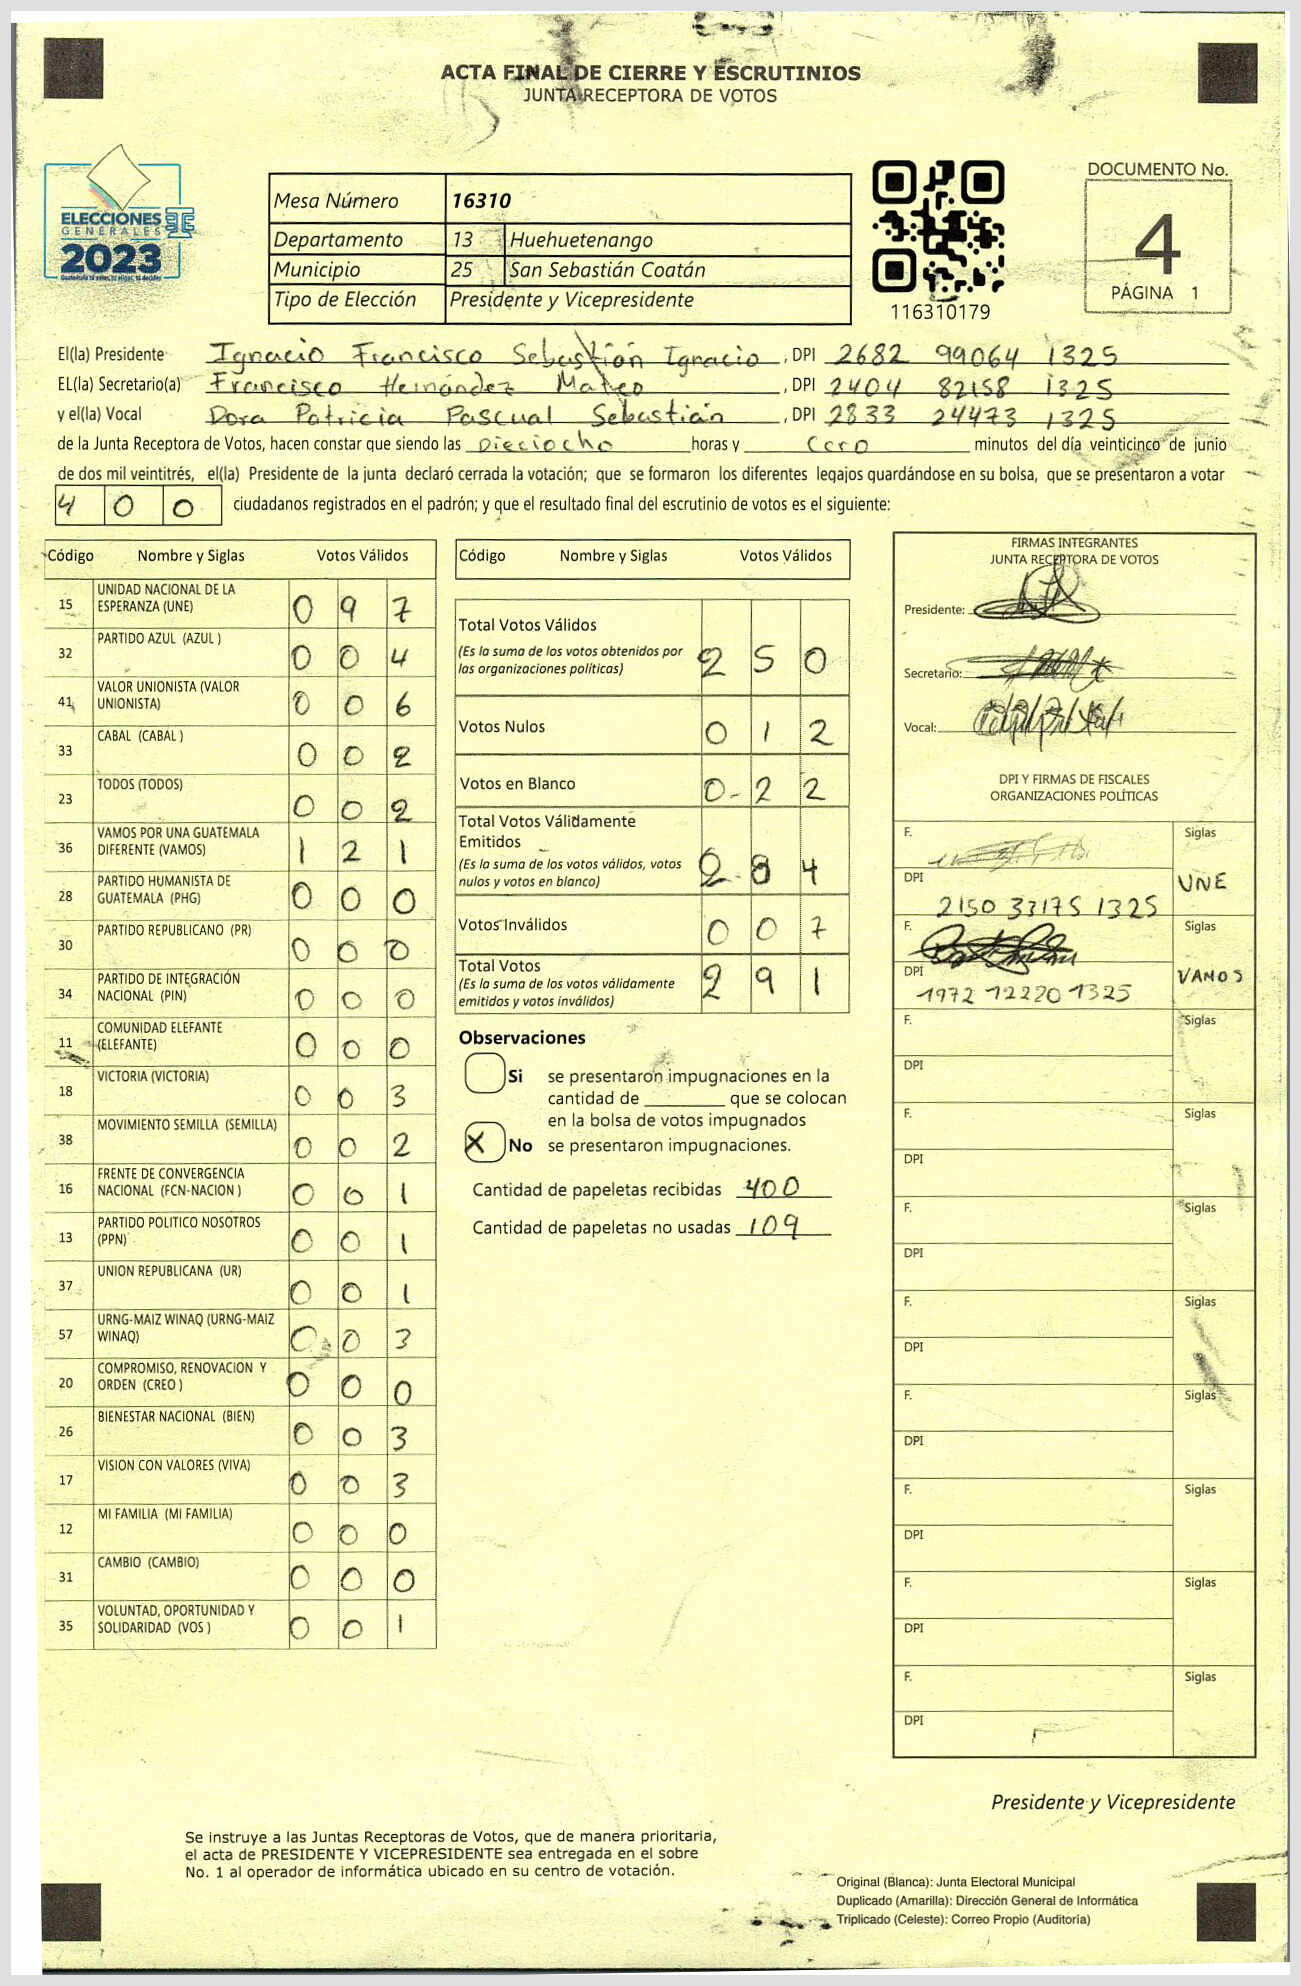 ACTA FINAL DE CIERRE Y ESCRUTINIOS
JUNTA RECEPTORA DE VOTOS
ELECCIONES
GENERALES
2023
Mesa Número 16310
Departamento 13 Huehuetenango
Municipio 25 San Sebastián Coatán
Tipo de Elección Presidente y Vicepresidente
116310179
DOCUMENTO No.
4
PÁGINA 1
El(la) Presidente Ignacio Francisco Sebastián Ignacio, DPI 2682 99064 1325
EL(la) Secretario(a) Francisco Hernández Mateo, DPI 2404 82158 1325
y el(la) Vocal Dora Patricia Pascual Sebastián, DPI 2833 24473 1325
de la Junta Receptora de Votos, hacen constar que siendo las Dieciocho horas y Cero minutos del día veinticinco de junio
de dos mil veintitrés, el(la) Presidente de la junta declaró cerrada la votación; que se formaron los diferentes legajos guardándose en su bolsa, que se presentaron a votar
4 0 0 ciudadanos registrados en el padrón; y que el resultado final del escrutinio de votos es el siguiente:
Código Nombre y Siglas Votos Válidos
15 UNIDAD NACIONAL DE LA ESPERANZA (UNE) 0 9 7
32 PARTIDO AZUL (AZUL ) 0 0 4
41 VALOR UNIONISTA (VALOR UNIONISTA) 0 0 6
33 CABAL (CABAL ) 0 0 2
23 TODOS (TODOS) 0 0 2
36 VAMOS POR UNA GUATEMALA DIFERENTE (VAMOS) 1 2 1
28 PARTIDO HUMANISTA DE GUATEMALA (PHG) 0 0 0
30 PARTIDO REPUBLICANO (PR) 0 0 0
34 PARTIDO DE INTEGRACIÓN NACIONAL (PIN) 0 0 0
11 COMUNIDAD ELEFANTE (ELEFANTE) 0 0 0
18 VICTORIA (VICTORIA) 0 0 3
38 MOVIMIENTO SEMILLA (SEMILLA) 0 0 2
16 FRENTE DE CONVERGENCIA NACIONAL (FCN-NACION ) 0 0 1
13 PARTIDO POLITICO NOSOTROS (PPN) 0 0 1
37 UNION REPUBLICANA (UR) 0 0 1
57 URNG-MAIZ WINAQ (URNG-MAIZ WINAQ) 0 0 3
20 COMPROMISO, RENOVACION Y ORDEN (CREO ) 0 0 0
26 BIENESTAR NACIONAL (BIEN) 0 0 3
17 VISION CON VALORES (VIVA) 0 0 3
12 MI FAMILIA (MI FAMILIA) 0 0 0
31 CAMBIO (CAMBIO) 0 0 0
35 VOLUNTAD, OPORTUNIDAD Y SOLIDARIDAD (VOS ) 0 0 1
Código Nombre y Siglas Votos Válidos
Total Votos Válidos
(Es la suma de los votos obtenidos por
las organizaciones políticas) 2 5 0
Votos Nulos 0 1 2
Votos en Blanco 0 2 2
Total Votos Válidamente
Emitidos
(Es la suma de los votos válidos, votos
nulos y votos en blanco) 2 8 4
Votos Inválidos 0 0 7
Total Votos
(Es la suma de los votos válidamente
emitidos y votos inválidos) 2 9 1
Observaciones
Si se presentaron impugnaciones en la
cantidad de ________ que se colocan
en la bolsa de votos impugnados
X No se presentaron impugnaciones.
Cantidad de papeletas recibidas 400
Cantidad de papeletas no usadas 109
FIRMAS INTEGRANTES
JUNTA RECEPTORA DE VOTOS
Presidente:
Secretario:
Vocal:
DPI Y FIRMAS DE FISCALES
ORGANIZACIONES POLÍTICAS
F. Siglas
DPI 2150 33175 1325 UNE
F. Siglas
DPI 1972 12220 1325 VAMOS
F. Siglas
DPI
F. Siglas
DPI
F. Siglas
DPI
F. Siglas
DPI
F. Siglas
DPI
F. Siglas
DPI
F. Siglas
DPI
F. Siglas
DPI
Presidente y Vicepresidente
Se instruye a las Juntas Receptoras de Votos, que de manera prioritaria,
el acta de PRESIDENTE Y VICEPRESIDENTE sea entregada en el sobre
No. 1 al operador de informática ubicado en su centro de votación.
Original (Blanca): Junta Electoral Municipal
Duplicado (Amarilla): Dirección General de Informática
Triplicado (Celeste): Correo Propio (Auditoría)